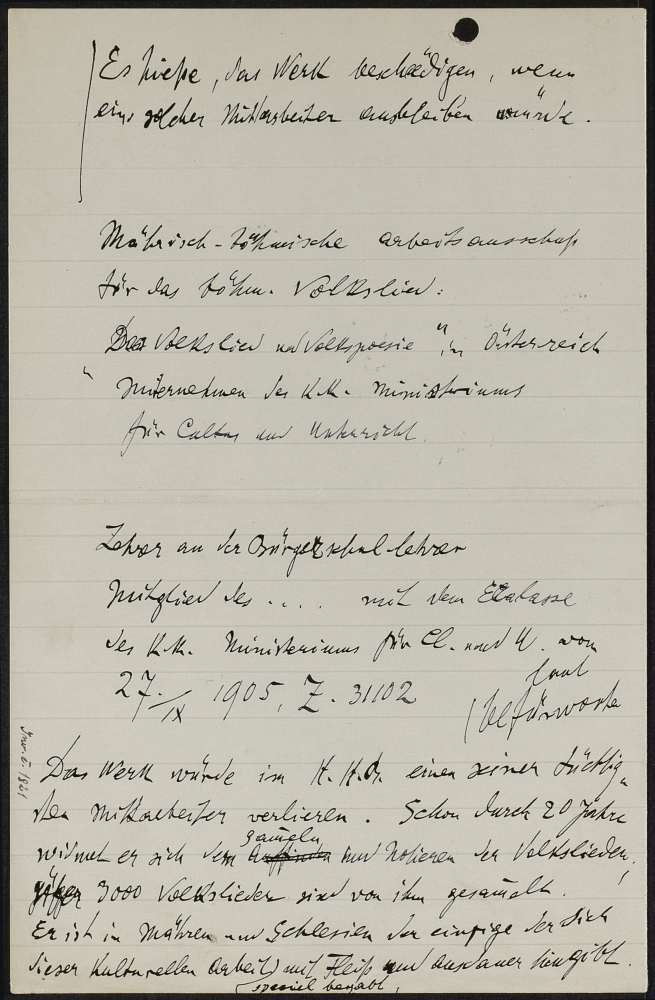 Es hieße, das Werk beschädigen, wenn
ein solcher Mitarbeiter ausbleiben würde.
Mährisch-böhmische Arbeitsausschuß
für das böhm. Volkslied:
Das Volkslied und Volkspoesie" in Österreich
" Unternehmen des k.k. Ministeriums
für Cultus und Unterricht.
Lehrer an der Bürgerschul lehrer
Mitglied des .... mit dem
des k.k. Ministeriums für C. und U. vom
27./IX 1905, Z. 31102 laut
befürworte
Das Werk würde im H. K. einen seiner tüchtig-
sten Mitarbeiter verlieren. Schon durch 20 Jahre
widmet er sich dem sammeln und Notieren der Volkslieder,
3000 Volkslieder sind von ihm gesamelt.
Er ist in Mähren und Schlesien der einzige der sich
dieser kulturellen Arbeit mit Fleiß und Ausdauer hingibt.
speciel begabt,
Inv. č. 1821